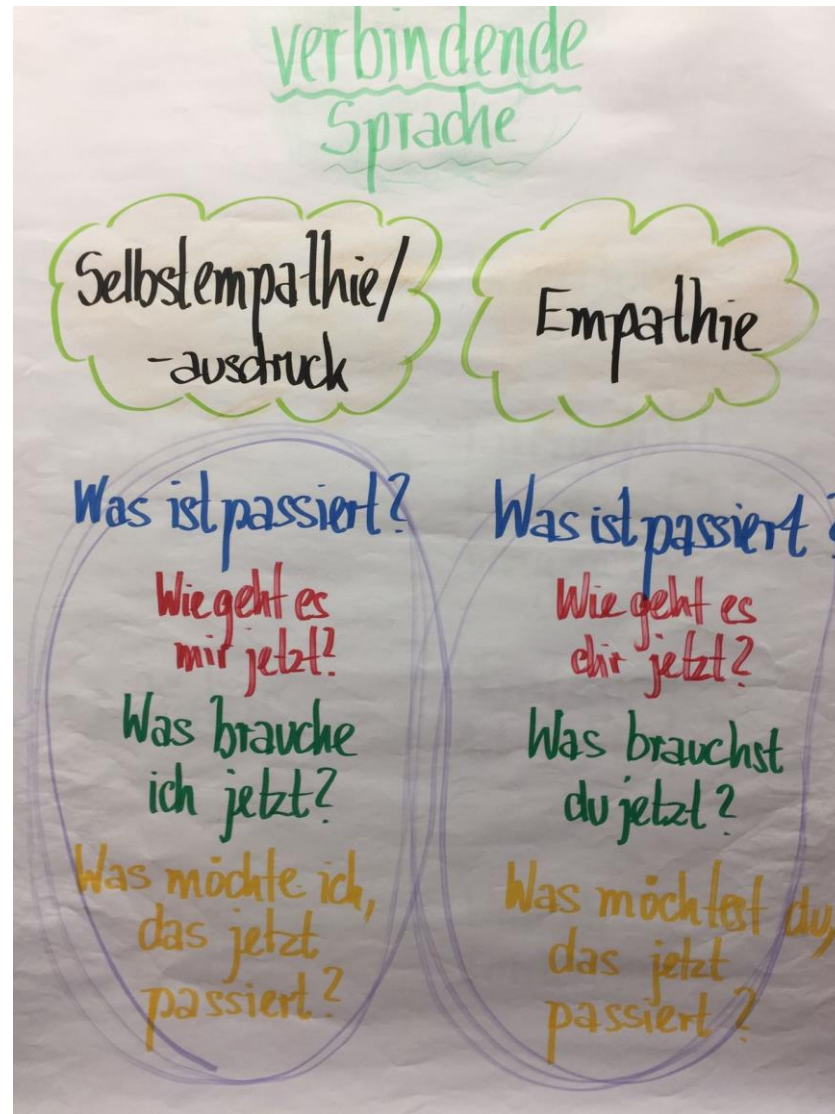 verbindende
Sprache
Selbstempathie/
-ausdruck
Empathie
Was ist passiert?
Wie geht es
mir jetzt?
Was brauche
ich jetzt?
Was möchte ich,
das jetzt
passiert?
Was ist passiert?
Wie geht es
dir jetzt?
Was brauchst
du jetzt?
Was möchtest du,
das jetzt
passiert?